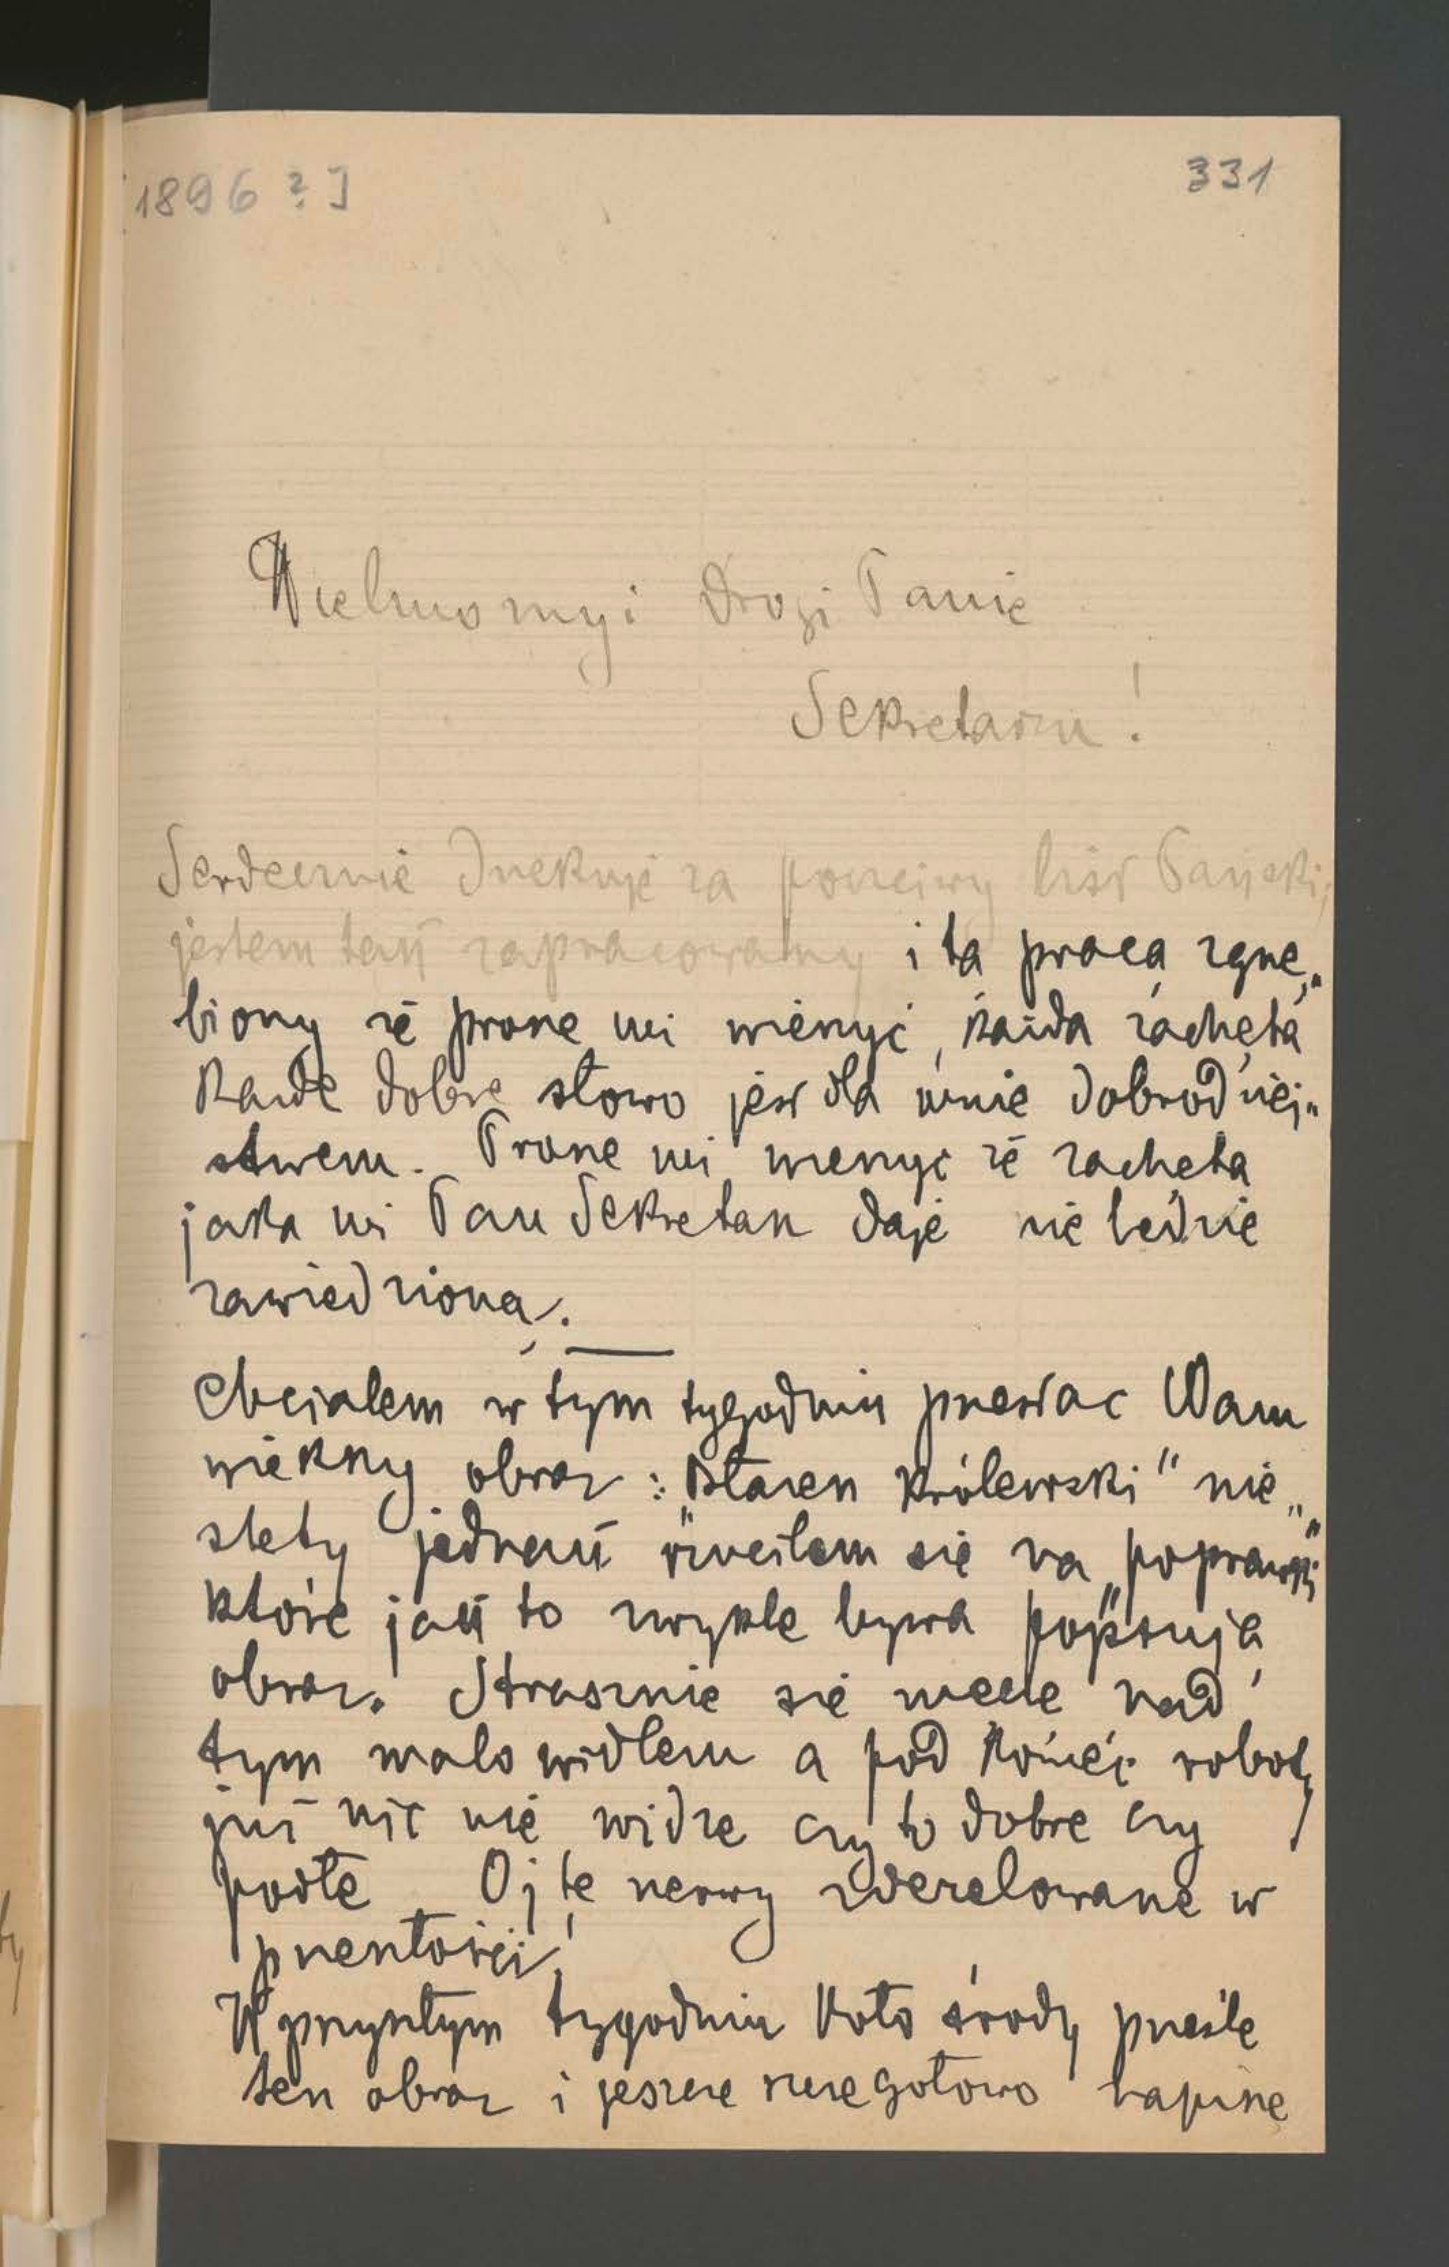 [1896?]
331
Wielmożny i Drogi Panie
Sekretarzu!
Serdecznie dziękuję za poczciwy list Pański,
jestem tak zapracowany i tą pracą zgnę„
biony że proszę mi wierzyć, każda zachęta
każde dobre słowo jest dla mnie dobrodziej„
stwem. Proszę mi wierzyć że zachęta
jaką mi Pan Sekretarz daje nie będzie
zawiedzioną.
Chciałem w tym tygodniu przesłać Wam
większy obraz: „Błazen Królewski" nie„
stety jednak rzuciłem się na „poprawki"
które jak to zwykle bywa „popsują"
obraz. Strasznie się męczę nad
tym malowidłem a pod koniec roboty
już nic nie widzę czy to dobre czy
podłe Oj te nerwy zderelowane w
przeszłości!
W przyszłym tygodniu koło środy prześlę
ten obraz i jeszcze szczegółowo napiszę